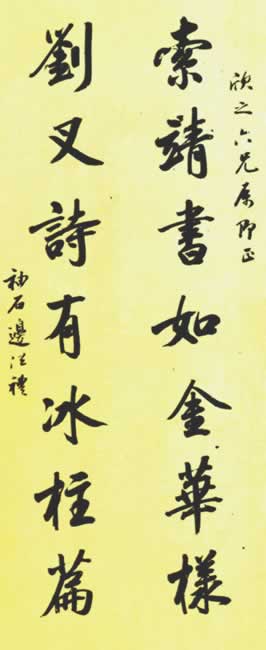 欣之六兄属即正
索靖書如金華樣
劉叉詩有冰柱篇
袖石邊浴禮